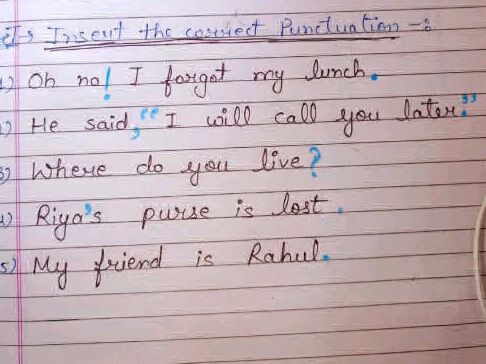 I → Insert the correct Punctuation -:
1) Oh no! I forgot my lunch.
2) He said, "I will call you later."
3) Where do you live?
4) Riya's purse is lost.
5) My friend is Rahul.